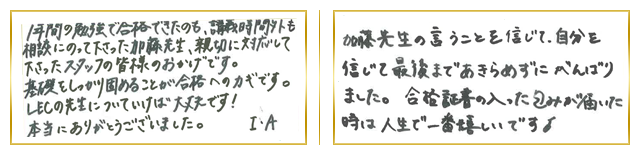 1年間の勉強で合格できたのも、講義時間外も
相談にのって下さった加藤先生、親切に対応して
下さったスタッフの皆様のおかげです。
基礎をしっかり固めることが合格へのカギです。
LECの先生についていけば大丈夫です!
本当にありがとうございました。 I・A
加藤先生の言うことを信じて、自分を
信じて最後まであきらめずにがんばり
ました。合格証書の入った包みが届いた
時は人生で一番嬉しいです♪